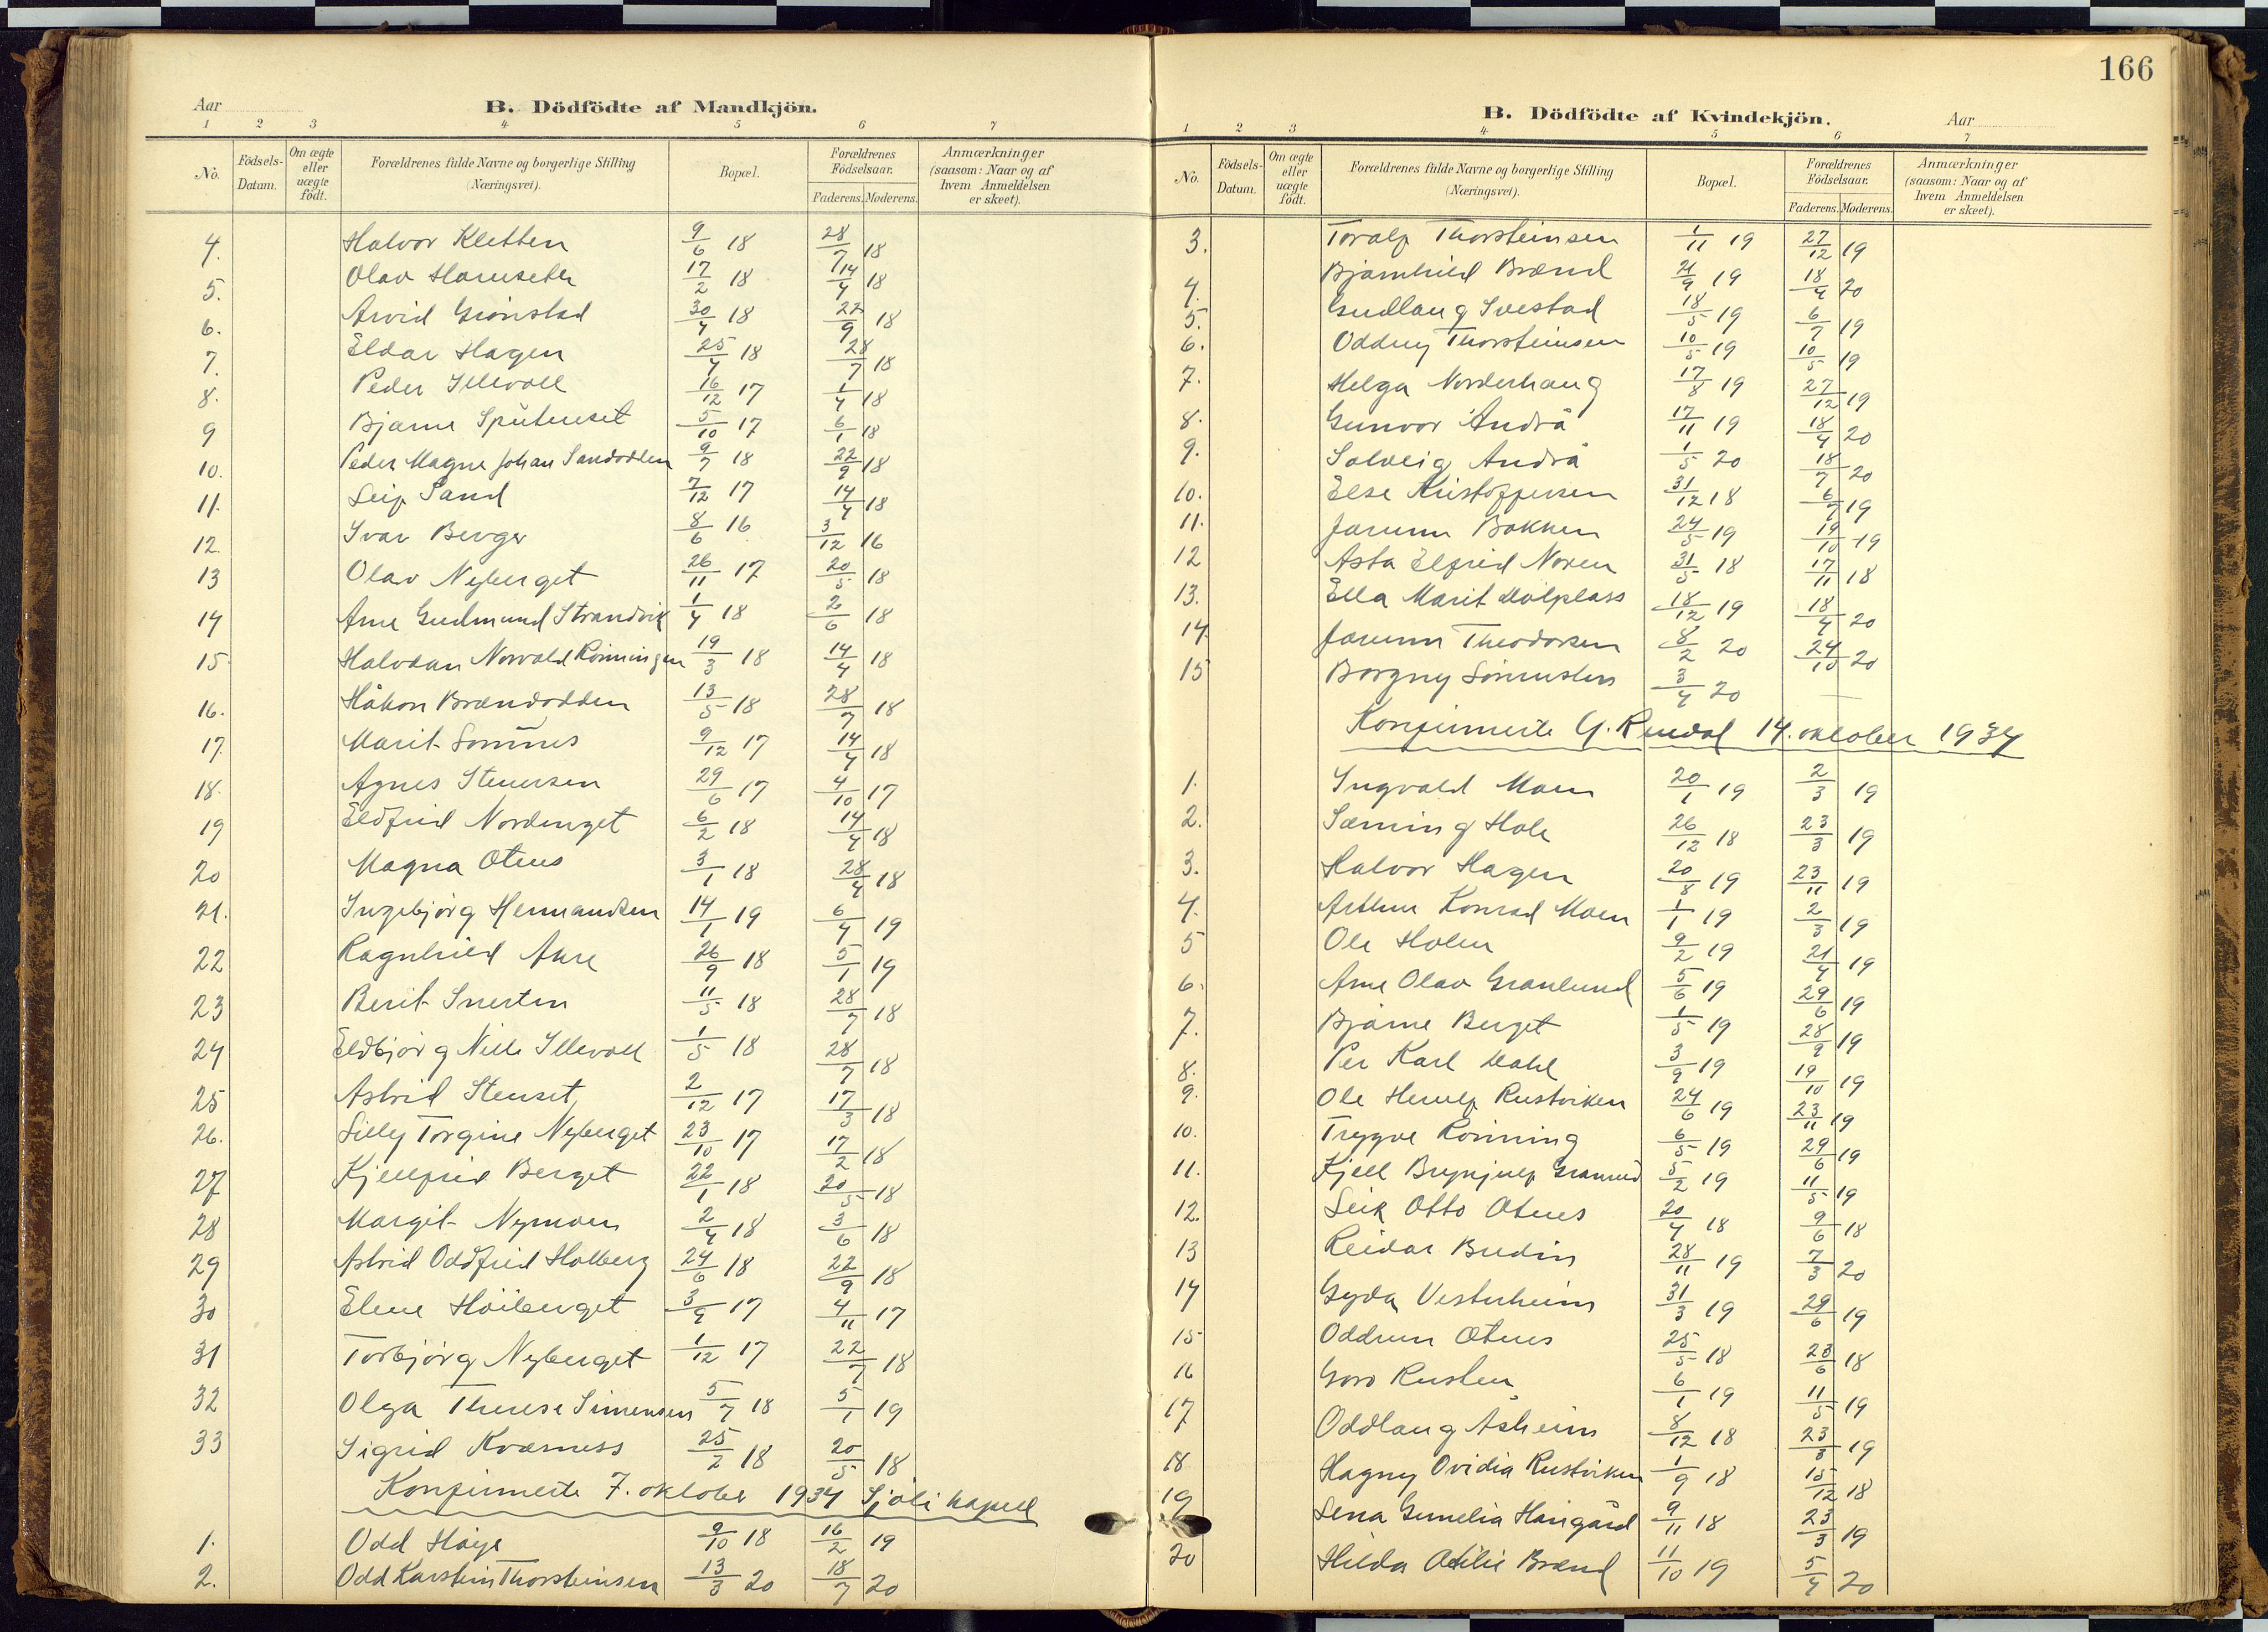 Aar
B. Dödfödte af Mandkjön.
1 2 3 4 5 6 7
No. Födsels-Datum. Om ægte eller uægte født. Forældrenes fulde Navne og borgerlige Stilling (Næringsvei). Bopæl. Forældrenes Födselsaar. Faderens. Moderens. Anmærkninger (saasom: Naar og af hvem Anmeldelsen er skeet).
4. Halvor Kletten 9/6 18 28/7 18
5. Olav Harseter 17/2 18 14/4 18
6. Arvid Grønstad 30/4 18 22/9 18
7. Eldar Hagen 25/4 18 28/7 18
8. Peder Illevoll 16/12 17 1/4 18
9 Bjarne 5/10 17 6/1 18
10. Peder Magne Johan Sandodden 9/7 18 22/9 18
11. Leif Sand 7/12 17 14/4 18
12. Ivar Berger 8/6 16 3/12 16
13 Olav Nyberget 26/11 17 20/5 18
14 Arne Gudmund Strandvik 1/4 18 2/6 18
15 Halvdan Norvald Rønningen 19/3 18 14/4 18
16. Håkon Brændodden 13/5 18 28/7 18
17. Marit Lomnes 9/12 17 14/4 18
18. Agnes Stenersen 29/6 17 4/10 17
19 Eldfrid Nordenget 6/2 18 14/4 18
20 Magna Otnes 3/1 18 28/4 18
21. Ingebjørg Hermandsen 14/1 19 6/4 19
22 Ragnhild Akre 26/9 18 5/1 19
23 Berit Snerten 11/5 18 28/7 18
24 Eldbjørg Nelli Illevoll 1/5 18 28/7 18
25 Astrid Stenset 2/12 17 17/3 18
26. Lilly Torgine Nyberget 23/10 17 17/2 18
27 Kjellfrid Berget 22/1 18 20/5 18
28 Margit Nymoen 2/4 18 3/6 18
29 Astrid Oddfrid Holberg 24/6 18 22/9 18
30 Elene Høiberget 3/9 17 4/11 17
31 Torbjørg Nyberget 1/12 17 22/7 18
32 Olga Therese Simensen 5/7 18 5/1 19
33 Sigrid Kværness 25/2 18 20/5 18
Konfirmerte 7. oktober 1934 Sjøli kapell
1. Odd Høye 9/10 18 16/2 19
2. Odd Karstein Thorsteinsen 13/3 20 18/7 20
166
B. Dödfödte af Kvindekjön. Aar
1 2 3 4 5 6 7
No. Födsels-Datum. Om ægte eller uægte födt. Forældrenes fulde Navne og borgerlige Stilling (Næringsvei). Bopæl. Forældrenes Födselsaar. Faderens. Moderens. Anmærkninger (saasom: Naar og af hvem Anmeldelsen er skeet).
3. Toralf Thorsteinsen 1/11 19 27/12 19
4. Bjarnhild Brænd 21/9 19 18/4 20
5. Gudlaug Svestad 18/5 19 6/7 19
6. Oddny Thorsteinsen 10/5 19 10/5 19
7. Helga Norderhaug 17/8 19 27/12 19
8. Gunvor Andrå 17/11 19 18/4 20
9. Solveig Andrå 1/5 20 18/7 20
10. Else Kristoffersen 31/12 18 6/7 19
11. Jorunn Bakken 24/5 19 19/10 19
12 Asta Elfrid Noren 31/5 18 17/11 18
13. Ella Marit Dølplass 18/12 19 18/4 20
14. Jorunn Theodorsen 8/2 20 24/10 20
15 Borgny 3/4 20 —
Konfirmerte Y. Rendal 14. oktober 1934
1. Ingvald Moen 20/1 19 2/3 19
2. Sæming Hole 26/12 18 23/3 19
3. Halvor Hagen 20/8 19 23/11 19
4. Arthur Konrad Moen 1/1 19 2/3 19
5 Ole Holen 9/2 19 21/4 19
6. Arne Olav Granlund 5/6 19 29/6 19
7. Bjarne Berget 1/5 19 28/9 19
8. Per Karl Dahl 3/9 19 19/10 19
9. Ole Herulf Rustviken 24/6 19 23/11 19
10. Trygve Rønning 6/5 19 29/6 19
11. Kjell Brynjulf Granrud 5/2 19 11/5 19
12. Leik Otto Otnes 20/4 18 9/6 18
13 Reidar Bredin 28/11 19 7/3 20
14 Gyda Vesterheim 31/3 19 29/6 19
15 Oddrun Otnes 25/5 18 23/6 18
16 Goro Rusten 6/1 19 11/5 19
17 Oddlaug Åsheim 8/12 18 23/3 19
18 Hagny Ovidia Rustviken 1/9 18 15/12 18
19 Lena Gunelia Haugård 9/11 18 23/3 19
20 Hilda Otilie Brænd 11/10 19 5/4 20